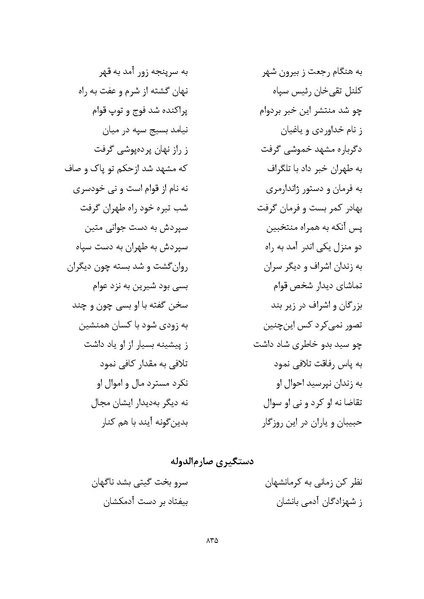 به هنگام رجعت ز بیرون شهر به سرپنجه زور آمد به قهر
کلنل تقی‌خان رئیس سپاه نهان گشته از شرم و عفت به راه
چو شد منتشر این خبر بردوام پراکنده شد فوج و توپ قوام
ز نام خداوردی و یاغیان نیامد بسیج سپه در میان
دگرباره مشهد خموشی گرفت ز راز نهان پرده‌پوشی گرفت
به طهران خبر داد با تلگراف که مشهد شد ازحکم تو پاک و صاف
به فرمان و دستور ژاندارمری نه نام از قوام است و نی خودسری
بهادر کمر بست و فرمان گرفت شب تیره خود راه طهران گرفت
پس آنکه به همراه منتخبین سپردش به دست جوانی متین
دو منزل یکی اندر آمد به راه سپردش به طهران به دست سپاه
به زندان اشراف و دیگر سران روان‌گشت و شد بسته چون دیگران
تماشای دیدار شخص قوام بسی بود شیرین به نزد عوام
بزرگان و اشراف در زیر بند سخن گفته با او بسی چون و چند
تصور نمی‌کرد کس این‌چنین به زودی شود با کسان همنشین
چو سید بدو خاطری شاد داشت ز پیشینه بسیار از او یاد داشت
به پاس رفاقت تلافی نمود تلافی به مقدار کافی نمود
به زندان نپرسید احوال او نکرد مسترد مال و اموال او
تقاضا نه او کرد و نی او سوال نه دیگر به‌دیدار ایشان مجال
حبیبان و یاران در این روزگار بدین‌گونه آیند با هم کنار
دستگیری صارم‌الدوله
نظر کن زمانی به کرمانشهان سرو بخت گیتی بشد ناگهان
ز شهزادگان آدمی بانشان بیفتاد بر دست آدمکشان
۸۳۵